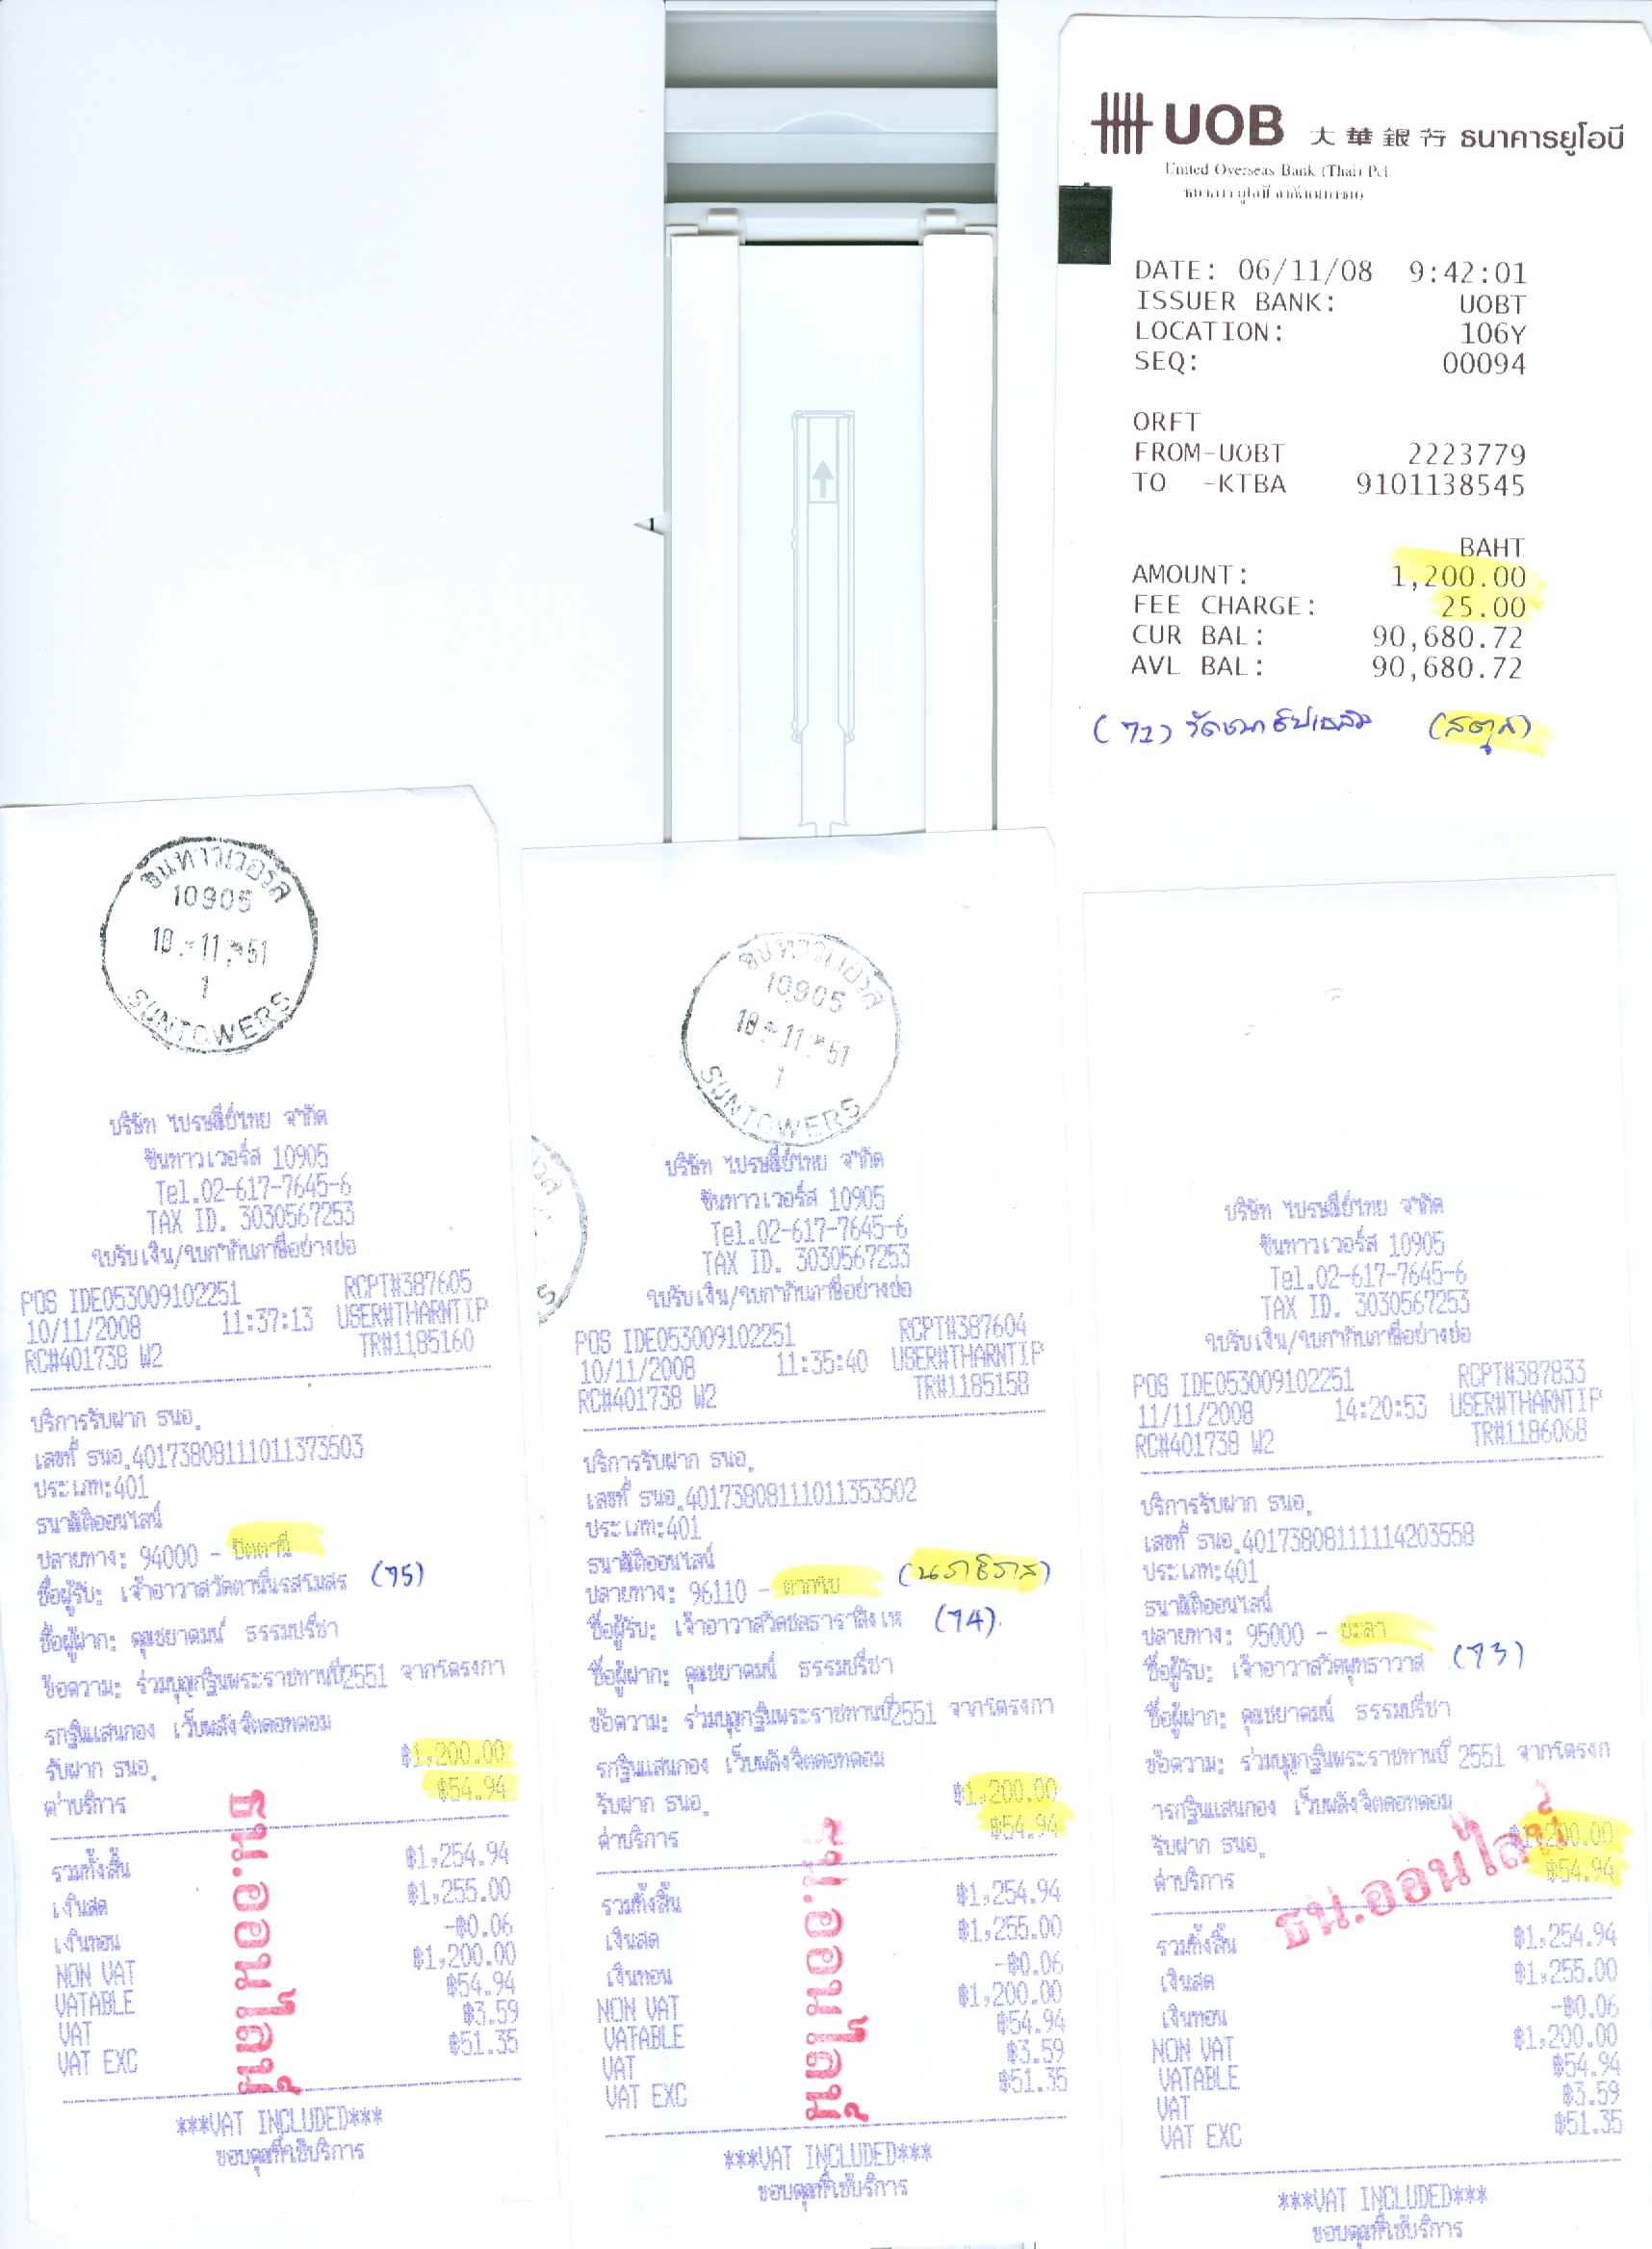 UOB 大華銀行 ธนาคารยูโอบี
United Overseas Bank (Thai) Pcl
DATE: 06/11/08 9:42:01
ISSUER BANK: UOBT
LOCATION: 106Y
SEQ: 00094
ORFT
FROM-UOBT 2223779
TO -KTBA 9101138545
BAHT
AMOUNT: 1,200.00
FEE CHARGE: 25.00
CUR BAL: 90,680.72
AVL BAL: 90,680.72
(72) (สตูล)
ซันทาวเวอร์ส
10905
10.-11.-51
1
SUNTOWERS
บริษัท ไปรษณีย์ไทย จำกัด
ซันทาวเวอร์ส 10905
Tel.02-617-7645-6
TAX ID. 3030567253
ใบรับเงิน/ใบกำกับภาษีอย่างย่อ
POS IDE053009102251 RCPT#387605
10/11/2008 11:37:13 USER#THARNTIP
RC#401738 W2 TR#1185160
บริการรับฝาก ธนอ.
เลขที่ ธนอ.40173808111011373503
ประเภท:401
ธนาณัติออนไลน์
ปลายทาง: 94000 - ปัตตานี
ชื่อผู้รับ: เจ้าอาวาสวัดตานีนรสโมสร (75)
ชื่อผู้ฝาก: คุณชยาคมน์ ธรรมปรีชา
ข้อความ: ร่วมบุญกฐินพระราชทานปี2551 จากโครงกา
รกฐินแสนกอง เว็บพลังจิตดอทคอม
รับฝาก ธนอ. ฿1,200.00
ค่าบริการ ฿54.94
รวมทั้งสิ้น ฿1,254.94
เงินสด ฿1,255.00
เงินทอน -฿0.06
NON VAT ฿1,200.00
VATABLE ฿54.94
VAT ฿3.59
VAT EXC ฿51.35
***VAT INCLUDED***
ขอบคุณที่ใช้บริการ
ธน.ออนไลน์
ซันทาวเวอร์ส
10905
10.-11.-51
1
SUNTOWERS
บริษัท ไปรษณีย์ไทย จำกัด
ซันทาวเวอร์ส 10905
Tel.02-617-7645-6
TAX ID. 3030567253
ใบรับเงิน/ใบกำกับภาษีอย่างย่อ
POS IDE053009102251 RCPT#387604
10/11/2008 11:35:40 USER#THARNTIP
RC#401738 W2 TR#1185158
บริการรับฝาก ธนอ.
เลขที่ ธนอ.40173808111011353502
ประเภท:401
ธนาณัติออนไลน์ (นราธิวาส)
ปลายทาง: 96110 - ตากใบ
ชื่อผู้รับ: เจ้าอาวาสวัดชลธาราสิงเห (74)
ชื่อผู้ฝาก: คุณชยาคมน์ ธรรมปรีชา
ข้อความ: ร่วมบุญกฐินพระราชทานปี2551 จากโครงกา
รกฐินแสนกอง เว็บพลังจิตดอทคอม
รับฝาก ธนอ. ฿1,200.00
ค่าบริการ ฿54.94
รวมทั้งสิ้น ฿1,254.94
เงินสด ฿1,255.00
เงินทอน -฿0.06
NON VAT ฿1,200.00
VATABLE ฿54.94
VAT ฿3.59
VAT EXC ฿51.35
***VAT INCLUDED***
ขอบคุณที่ใช้บริการ
ธน.ออนไลน์
บริษัท ไปรษณีย์ไทย จำกัด
ซันทาวเวอร์ส 10905
Tel.02-617-7645-6
TAX ID. 3030567253
ใบรับเงิน/ใบกำกับภาษีอย่างย่อ
POS IDE053009102251 RCPT#387833
11/11/2008 14:20:53 USER#THARNTIP
RC#401738 W2 TR#1186068
บริการรับฝาก ธนอ.
เลขที่ ธนอ.40173808111114203558
ประเภท:401
ธนาณัติออนไลน์
ปลายทาง: 95000 - ยะลา
ชื่อผู้รับ: เจ้าอาวาสวัดพุทธาวาส (73)
ชื่อผู้ฝาก: คุณชยาคมน์ ธรรมปรีชา
ข้อความ: ร่วมบุญกฐินพระราชทานปี 2551 จากโครงก
ารกฐินแสนกอง เว็บพลังจิตดอทคอม
รับฝาก ธนอ. ฿1,200.00
ค่าบริการ ฿54.94
ธน.ออนไลน์
รวมทั้งสิ้น ฿1,254.94
เงินสด ฿1,255.00
เงินทอน -฿0.06
NON VAT ฿1,200.00
VATABLE ฿54.94
VAT ฿3.59
VAT EXC ฿51.35
***VAT INCLUDED***
ขอบคุณที่ใช้บริการ